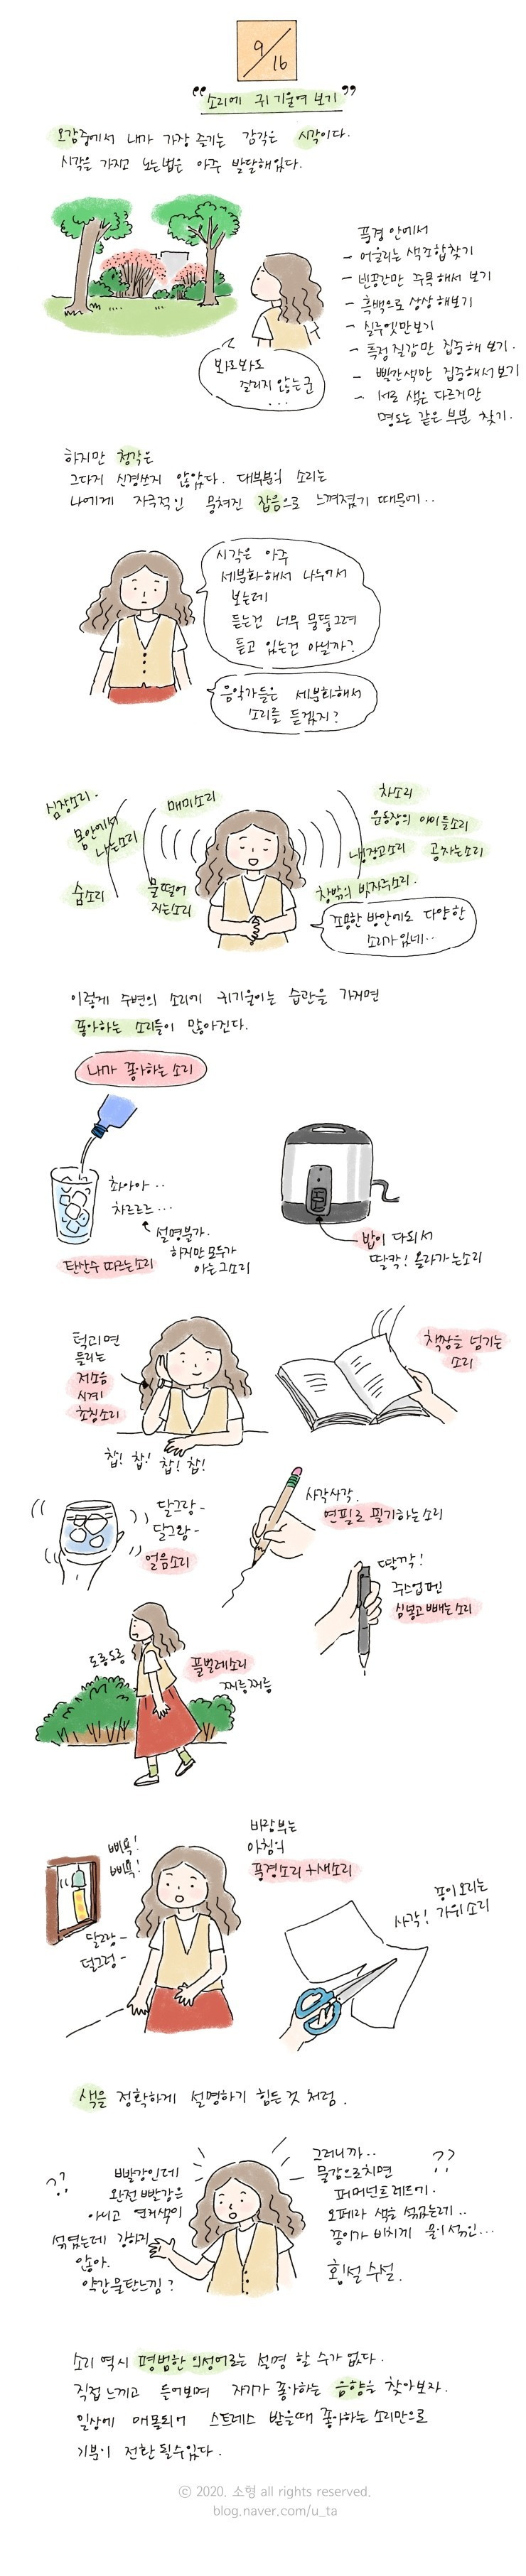 9/16
"소리에 귀 기울여 보기"
오감중에서 내가 가장 즐기는 감각은 시각이다.
시각을 가지고 노는법은 아주 발달해있다.
풍경 안에서
- 어울리는 색조합찾기
- 네공간만 주목해서 보기
- 흑백으로 상상해보기
- 실루엣만보기
- 특정 질감만 집중해 보기.
- 빨간색만 집중해서보기
- 서로 색은 다르지만
명도는 같은 부분 찾기.
봐도봐도
질리지 않는군
...
하지만 청각은
그다지 신경쓰지 않았다. 대부분의 소리는
나에게 자극적인 뭉쳐진 잡음으로 느껴졌기 때문에..
시각은 아주
세분화해서 나누어서
보는데
듣는건 너무 뭉뚱그려
듣고 있는건 아닐까?
음악가들은 세분화해서
소리를 듣겠지?
심장소리.
몸안에서
나는소리
숨소리
매미소리
물떨어
지는소리
차소리
운동장의 아이들소리
냉장고소리
공차는소리
창밖의 빗자루소리.
조용한 방안에도 다양한
소리가 있네..
이렇게 주변의 소리에 귀기울이는 습관을 가지면
좋아하는 소리들이 많아진다.
내가 좋아하는 소리
촤아아..
차르르르...
설명불가.
하지만 모두가
아는 그소리
탄산수 따르는소리
밥이 다되서
딸칵! 올라가는소리
턱괴면
들리는
저소음
시계
초침소리
챱! 챱! 챱! 챱!
책장을 넘기는
소리
달그랑-
달그랑-
얼음소리
사각사각.
연필로 필기하는소리
딸깍!
주스업펜
심넣고빼는소리
도롱도롱
풀벌레소리
찌릉찌릉
삐욕!
삐욕!
달그랑-
덜그렁-
바람부는
아침의
풍경소리+새소리
종이오리는
사각! 가위소리
색을 정확하게 설명하기 힘든것 처럼.
??
빨강인데
완전빨강은
아니고 연거색이
섞였는데 강하진
않아.
약간물탄느낌?
그러니까..
물감으로치면
퍼머넌트레드에.
오페라 색을 섞었는데..
종이가 비치게 물이섞인...
??
횡설수설.
소리 역시 평범한 의성어로는 설명 할 수가 없다.
직접 느끼고 들어보며 자기가 좋아하는 음향을 찾아보자.
일상에 매몰되어 스트레스 받을때 좋아하는 소리만으로
기분이 전환 될수있다.
ⓒ 2020. 소형 all rights reserved.
blog.naver.com/u_ta